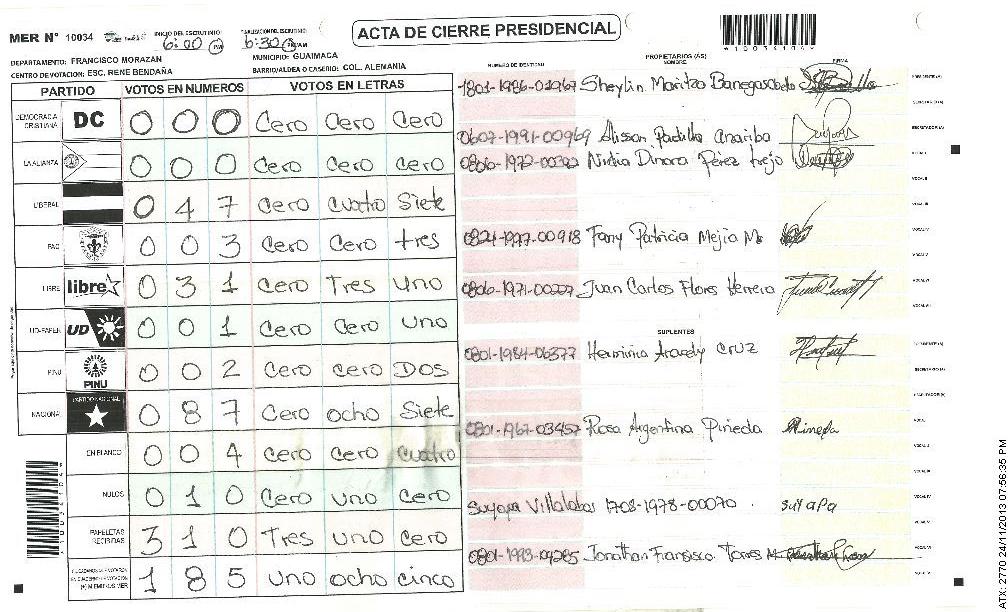 MER N° 10034
INICIO DEL ESCRUTINIO
6:00 PM
FINALIZACION DEL ESCRUTINIO
6:30
ACTA DE CIERRE PRESIDENCIAL
DEPARTAMENTO: FRANCISCO MORAZAN
MUNICIPIO: GUAIMACA
CENTRO DE VOTACION: ESC. RENE BENDAÑA
BARRIO/ALDEA O CASERIO: COL. ALEMANIA
PARTIDO VOTOS EN NUMEROS VOTOS EN LETRAS
DEMOCRACIA CRISTIANA DC 0 0 0 Cero Cero Cero
LA ALIANZA 0 0 0 Cero Cero Cero
LIBERAL 0 4 7 Cero Cuatro Siete
PAC 0 0 3 Cero Cero tres
LIBRE libre 0 3 1 Cero Tres Uno
UD-FAPER UD 0 0 1 Cero Cero Uno
PINU PINU 0 0 2 Cero Cero DOS
NACIONAL PARTIDO NACIONAL 0 8 7 Cero ocho Siete
EN BLANCO 0 0 4 Cero Cero Cuatro
NULOS 0 1 0 Cero uno Cero
PAPELETAS RECIBIDAS 3 1 0 Tres uno Cero
1 8 5 uno ocho cinco
PROPIETARIOS (AS)
NUMERO DE IDENTIDAD NOMBRE FIRMA
1801-1986-01967 Sheylin Maritza Banegas
0607-1991-00969 Alisson Padilla Anariba
Nidia Dinora Pérez trejo
0824-1977-00918 Fany Patricia Mejia
Juan Carlos Flores Herrera
SUPLENTES
0801-1984-06377 Herminia Aracely CRUZ
0801-1967-03457 Rosa Argentina Pineda Pineda
Suyapa Villalobos 1708-1978-00070 suyapa
0801-1993-09285 Jonathan Francisco Torres M
ATX: 2770 24/11/2013 07:56:35 PM